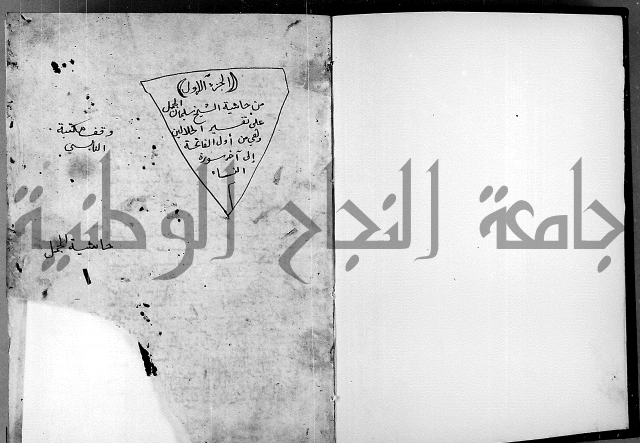 (الجزء الأول)
من حاشية الشيخ سليمان الجمل
على تفسير الجلالين
وهي من أول الفاتحة
إلى آخر سورة
النساء
وقف مكتبة
حاشية الجمل
١
جامعة النجاح الوطنية